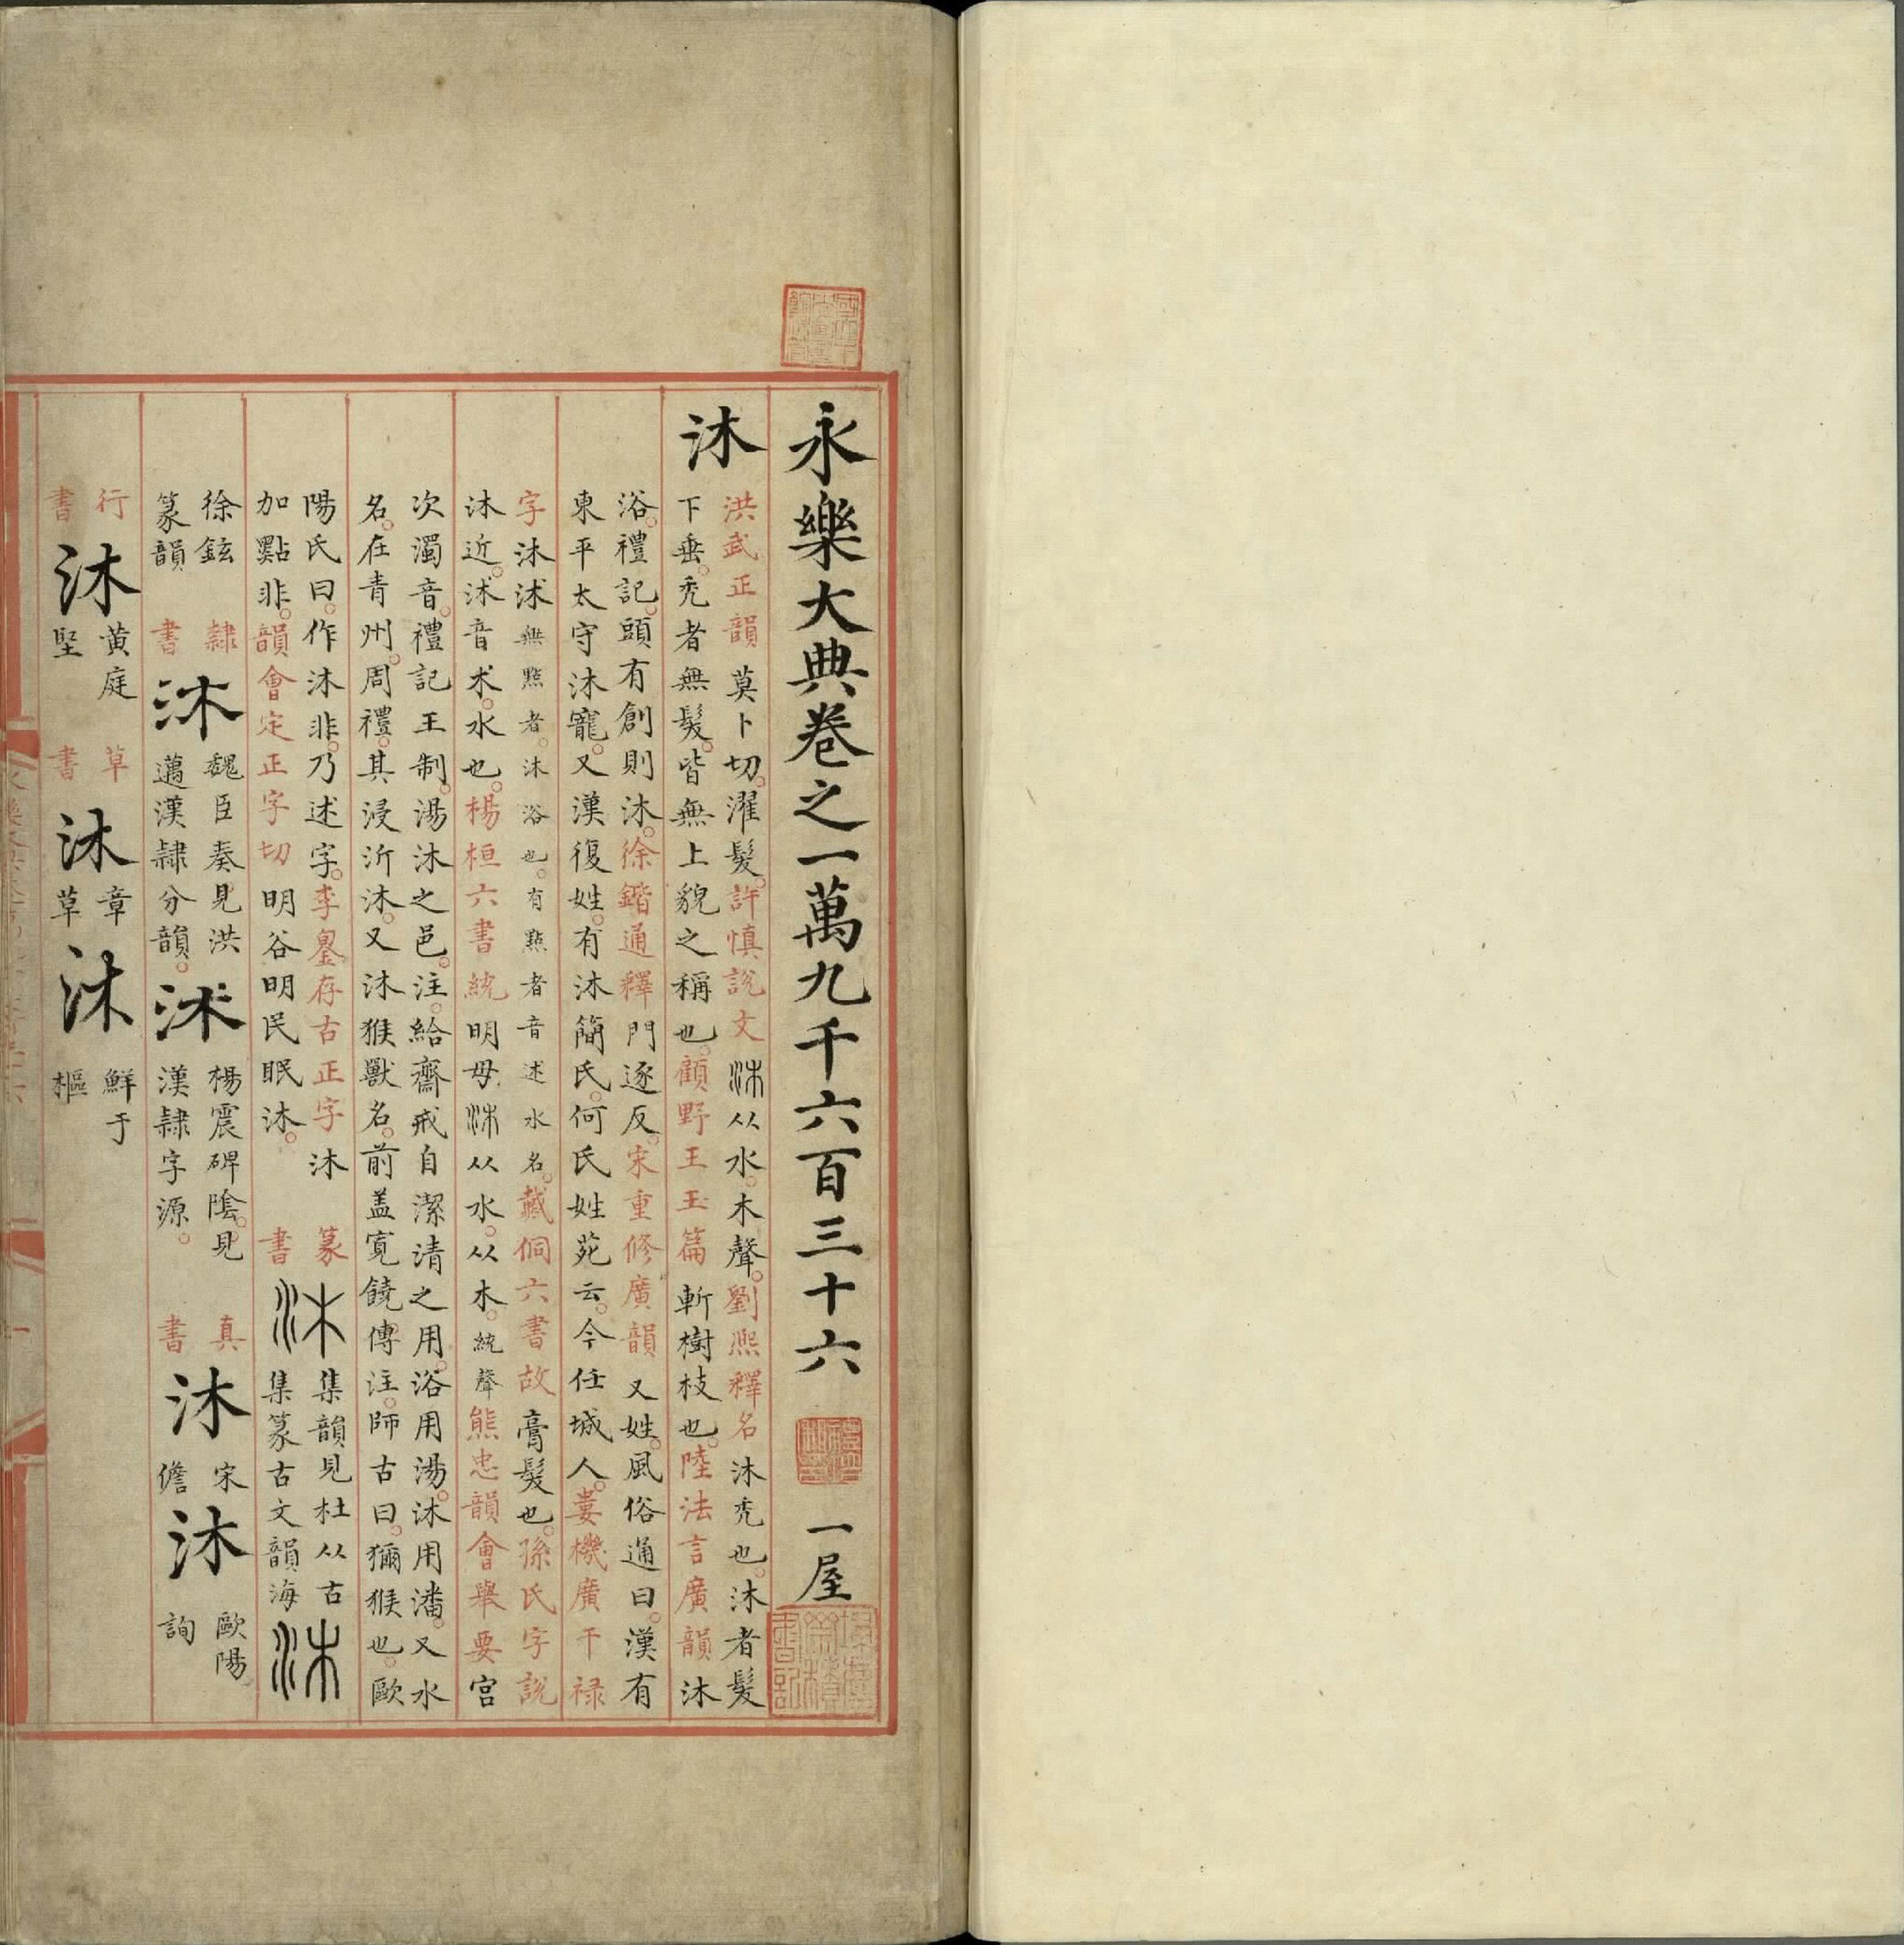 永樂大典卷之一萬九千六百三十六 一屋
沐
洪武正韻莫卜切。濯髮。許慎說文沐从水。木聲。劉熙釋名沐禿也。沐者髮
下垂。禿者無髮。皆無上貌之稱也。顧野王玉篇斬樹枝也。陸法言廣韻沐
浴。禮記。頭有創則沐。徐鍇通釋門逐反。宋重修廣韻又姓。風俗通曰。漢有
東平太守沐寵。又漢復姓。有沐簡氏。何氏姓苑云。今任城人。婁機廣干禄
字沐沭無㸃者。沐浴也。有㸃者音述水名。戴侗六書故膏髮也。孫氏字說
沐近。沭音术。水也。楊桓六書統明母沐从水。从木。統聲熊忠韻會舉要宫
次濁音。禮記王制。湯沐之邑。注。給齋戒自潔清之用。浴用湯。沐用潘。又水
名。在青州。周禮。其浸沂沐。又沐猴獸名。前盖寛饒傳注。師古曰。獼猴也。歐
陽氏曰。作沐非。乃述字。李鋆存古正字沐
加㸃非。韻會定正字切明谷明民眠沐。
篆書
沐
集韻見杜从古
集篆古文韻海
沐
徐鉉
篆韻
隸書
沐
魏臣奏見洪
邁漢隸分韻。
沭
楊震碑隂。見
漢隸字源。
真書
沐
宋儋
沐
歐陽詢
行書
沐
黄庭堅
草書
沐
章草
沐
鮮于樞